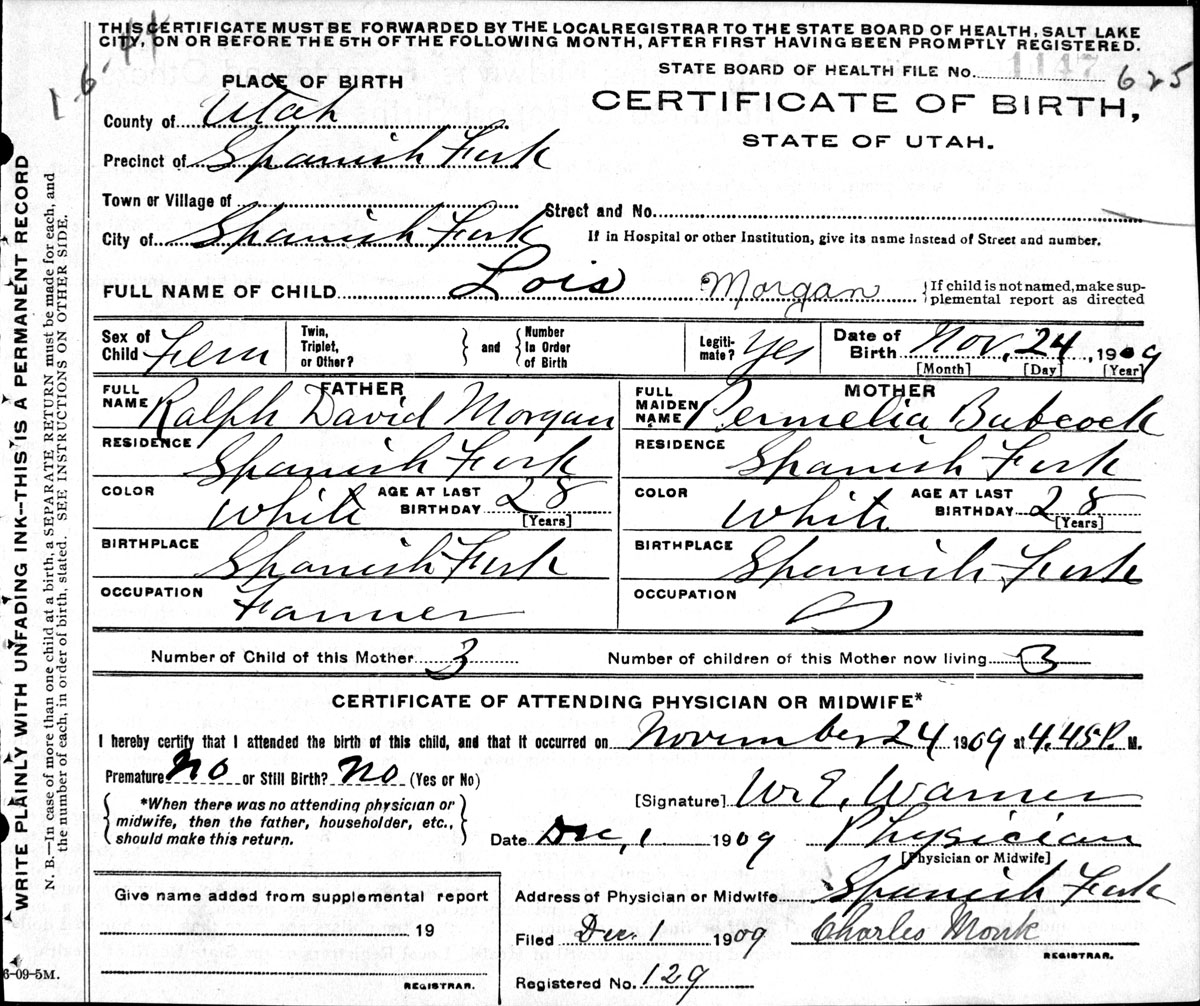 THIS CERTIFICATE MUST BE FORWARDED BY THE LOCAL REGISTRAR TO THE STATE BOARD OF HEALTH, SALT LAKE
CITY, ON OR BEFORE THE 5TH OF THE FOLLOWING MONTH, AFTER FIRST HAVING BEEN PROMPTLY REGISTERED.
PLACE OF BIRTH
STATE BOARD OF HEALTH FILE No. 1147 625
County of Utah
CERTIFICATE OF BIRTH,
STATE OF UTAH.
Precinct of Spanish Fork
Town or Village of
Street and No.
City of Spanish Fork
If in Hospital or other Institution, give its name instead of Street and number.
FULL NAME OF CHILD Lois Morgan {If child is not named, make sup-
plemental report as directed
Sex of Child Fem
Twin, Triplet, or Other? } and { Number In Order of Birth
Legiti-mate? Yes
Date of Birth Nov, 24, 1909
[Month] [Day] [Year]
FATHER
FULL NAME Ralph David Morgan
MOTHER
FULL MAIDEN NAME Permelia Babcock
RESIDENCE Spanish Fork
RESIDENCE Spanish Fork
COLOR White AGE AT LAST BIRTHDAY 28 [Years]
COLOR White AGE AT LAST BIRTHDAY 28 [Years]
BIRTHPLACE Spanish Fork
BIRTHPLACE Spanish Fork
OCCUPATION Farmer
OCCUPATION
Number of Child of this Mother 3 Number of children of this Mother now living 3
CERTIFICATE OF ATTENDING PHYSICIAN OR MIDWIFE*
I hereby certify that I attended the birth of this child, and that it occurred on November 24 1909 at 4.45 P. M.
Premature No or Still Birth? No (Yes or No)
*When there was no attending physician or
midwife, then the father, householder, etc.,
should make this return.
[Signature] W. E. Warner
Date Dec, 1 1909 Physician
[Physician or Midwife]
Address of Physician or Midwife Spanish Fork
Give name added from supplemental report
19
REGISTRAR.
Filed Dec. 1 1909 Charles Monk
REGISTRAR.
Registered No. 129
6-09-5M.
WRITE PLAINLY WITH UNFADING INK--THIS IS A PERMANENT RECORD
N. B.—In case of more than one child at a birth, a SEPARATE RETURN must be made for each, and
the number of each, in order of birth, stated. SEE INSTRUCTIONS ON OTHER SIDE.